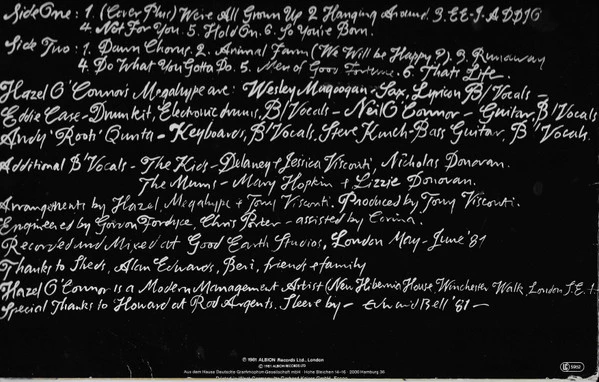 Side One: 1. (Cover Plus) We're All Grown Up 2 Hanging Around. 3. EE-I-ADDIO
4. Not For You. 5. Hold On. 6. So You're Born.
Side Two: 1. Dawn Chorus. 2. Animal Farm (We Will be Happy?). 3. Runaway
4. Do What You Gotta Do. 5. Men of Good Fortune. 6. That's Life.
Hazel O'Connors Megahype are: Wesley Magoogan - Sax, Lyricon B/Vocals -
Eddie Case - Drumkit, Electronic drums, B/Vocals - Neil O'Connor - Guitar, B/Vocals
Andy 'Roots' Qunta - Keyboards, B/Vocals, Steve Kinch - Bass Guitar, B/Vocals.
Additional B/Vocals - The Kids - Delaney & Jessica Visconti, Nicholas Donovan.
The Mums - Mary Hopkin & Lizzie Donovan.
Arrangements by Hazel, Megahype & Tony Visconti. Produced by Tony Visconti.
Engineered by Gordon Fordyce, Chris Porter - assisted by
Recorded and Mixed at Good Earth Studios, London May - June '81
Thanks to Sheds, Alan Edwards, Beri, friends & family
Hazel O'Connor is a Modern Management Artist (New Hibernia House Winchester Walk, London S.E.1
Special Thanks to Howard at Rod Argents. Sleeve by - Edward Bell '81 -
℗ 1981 ALBION Records Ltd., London
© 1981 ALBION RECORDS
Aus dem Hause Deutsche Grammophon Gesellschaft mbH · Hohe Bleichen 14-16 · 2000 Hamburg 36
LC 5952